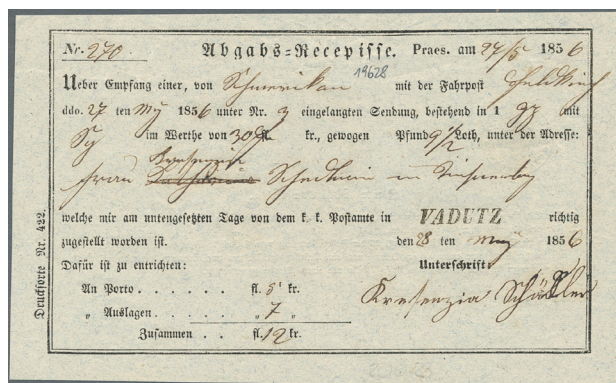 Nr. 270. Abgabs=Recepisse. Praes. am 27/5 1856
19628
Ueber Empfang einer, von Schmerikon mit der Fahrpost Feldkirch
ddo. 27 ten May 1856 unter Nr. 3 eingelangten Sendung, bestehend in 1 mit
im Werthe von 30 fl. kr., gewogen Pfund 9 1/2 Loth, unter der Adresse:
Kresenzia
Frau in
welche mir am untengesetzten Tage von dem k. k. Postamte in VADUTZ richtig
zugestellt worden ist. den 28 ten May 1856
Dafür ist zu entrichten: Unterschrift:
An Porto . . . . . . fl. 5 kr.
„ Auslagen . . . . . „ 7 „
Kresenzia Schädler
Zusammen . . fl. 12 kr.
Drucksorte Nr. 422.